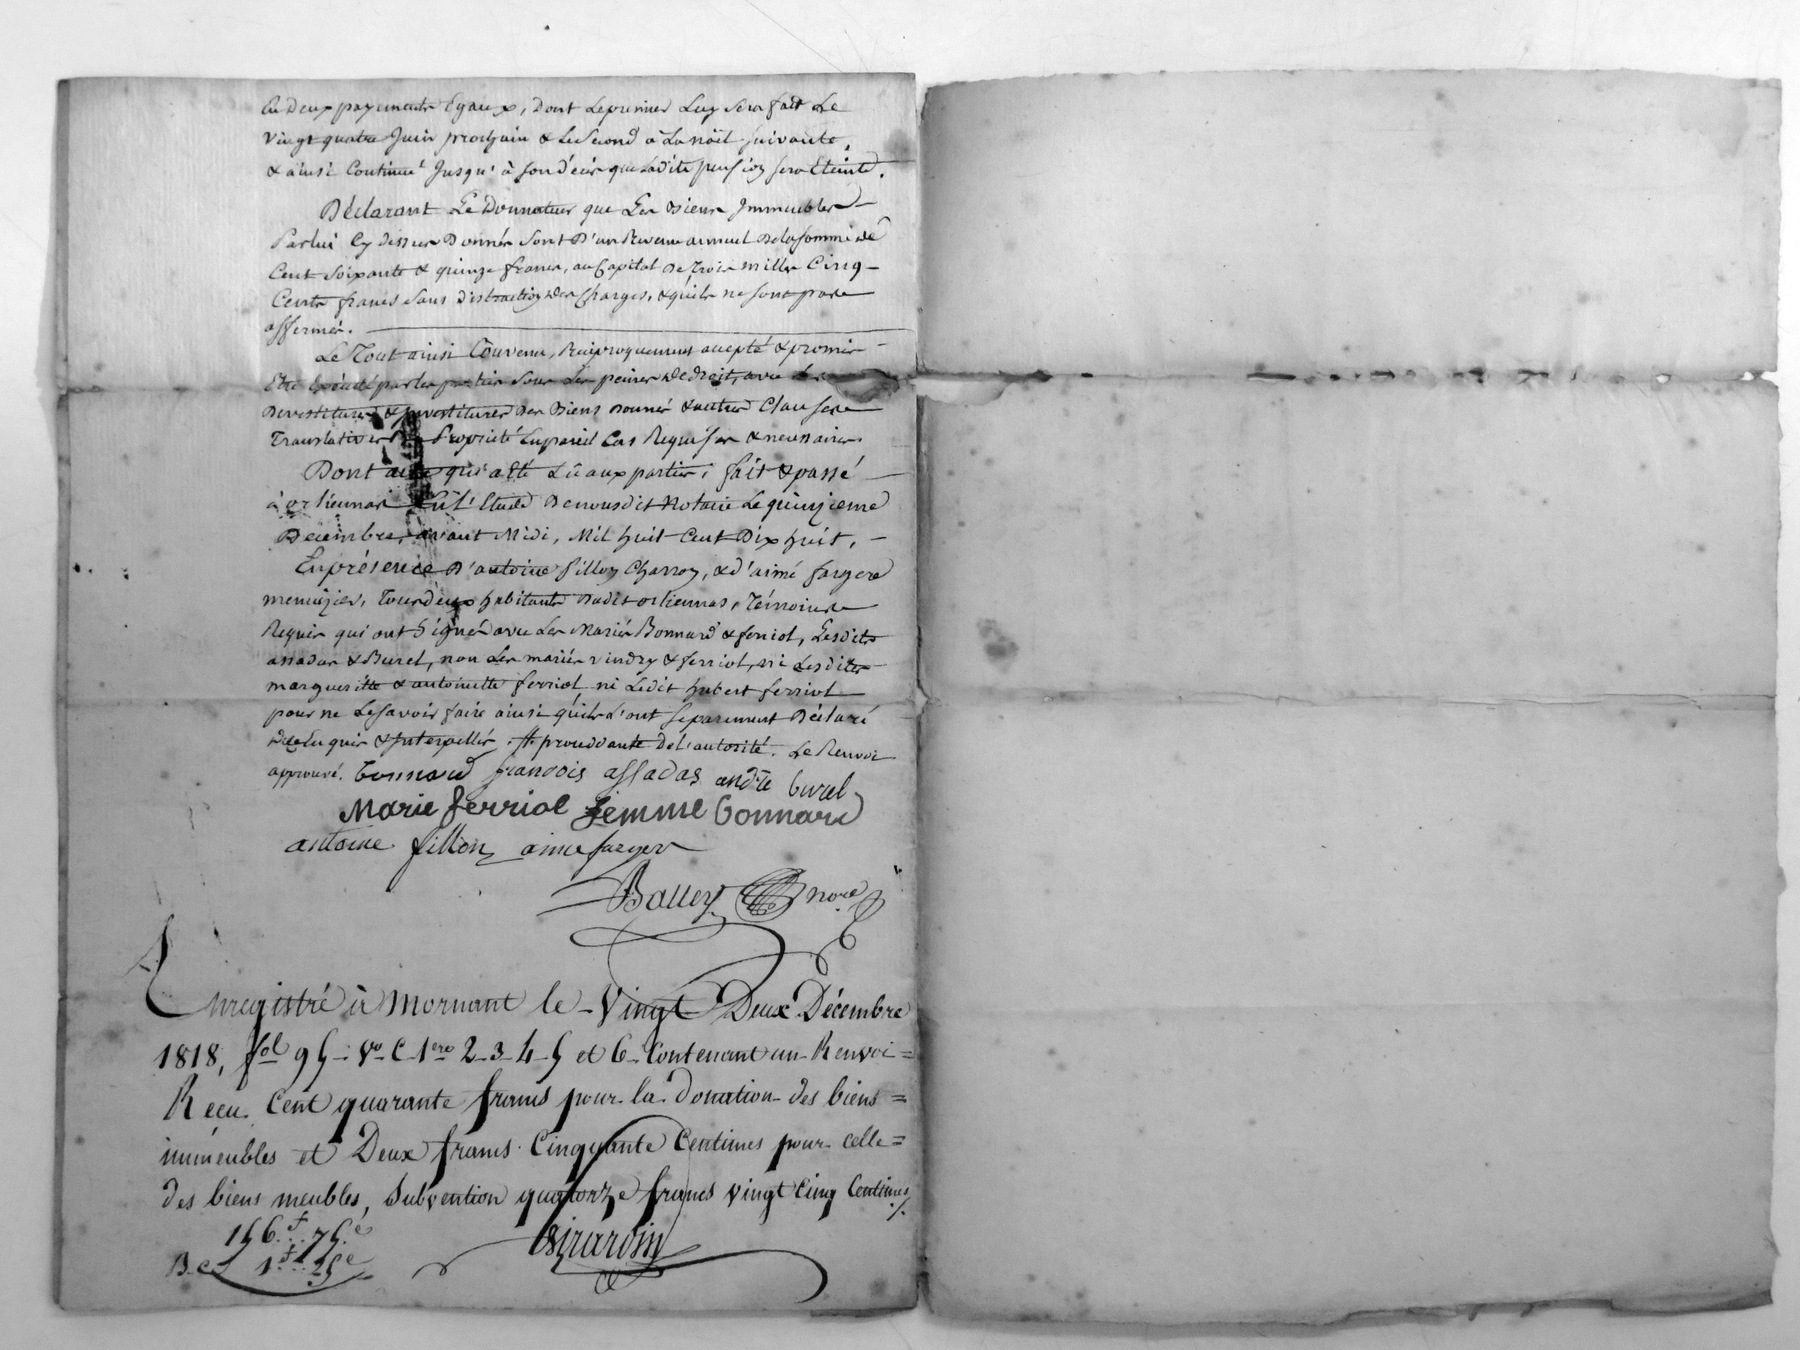 En Deux payements Egaux, Dont Le premier Luy Sera fait Le
vingt quatre Juin prochain & Le Second à La noël suivante,
& ainsi Continué Jusqu'à son décès que Ladite pension sera Eteinte.
Déclarant Le Donnateur que Les Biens Immeubles
Par lui Cy dessus Donnés Sont D'un Revenu annuel De la somme de
Cent Soixante & quinze francs, au Capital De Trois mille Cinq
Cents francs Sans Distraction Des Charges, & qu'ils ne sont pas
affermés.
Le Tout ainsi Convenu, Réciproquement accepté & promis
Etre Exécuté par les parties Sous Les peines De droit, avec Les
Devestitures & Investitures Des Biens Donnés & autres Clauses
Translatives De Propriété En pareil Cas Requises & necessaires.
Dont acte qui a Eté Lû aux parties; fait & passé
à orliennas En L'Etude De nousdit Notaire Le quinzieme
Décembre, avant Midi, Mil huit Cent Dix huit,
En présence D'antoine fillon Charron, & d'aimé fargere
menuizier, Tous deux habitants Dudit orliennas, Témoins
Requis qui ont Signé avec Les Mariés Bonnard & ferriol, Lesdits
assadas & Burel, non Les mariés vindry & ferriol, ni Lesdites
marguerite & antoinette ferriol, ni Ledit hubert ferriol
pour ne Le savoir faire ainsi qu'ils L'ont Separement Déclaré
De ce Enquis & Interpellés. # prouvante De L'autorité. Le Renvoi
approuvé. Bonnard francois assadas andré burel
Marie ferriol femme bonnard
antoine fillon aime farger
Balley nore
Enregistré à Mornant le Vingt Deux Décembre
1818, fol 95 Vo C 1ere 2-3-4-5 et 6 Contenant un Renvoi =
Recu Cent quarante francs pour la donation des biens =
immeubles et Deux francs Cinquante Centimes pour celle =
des biens meubles, Subvention quatorze francs vingt cinq Centimes ./.
156f..75c
1f..25c
Girardin